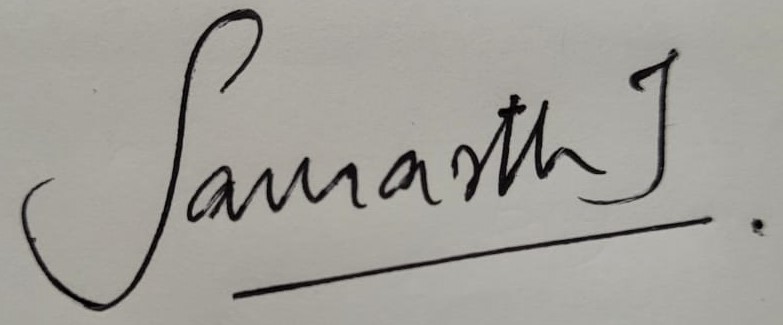 Samarth J.